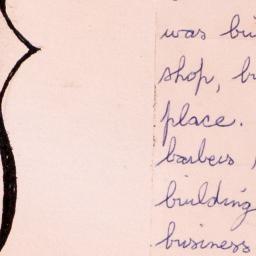 was bui
shop, bu
place.
barbers
building
business